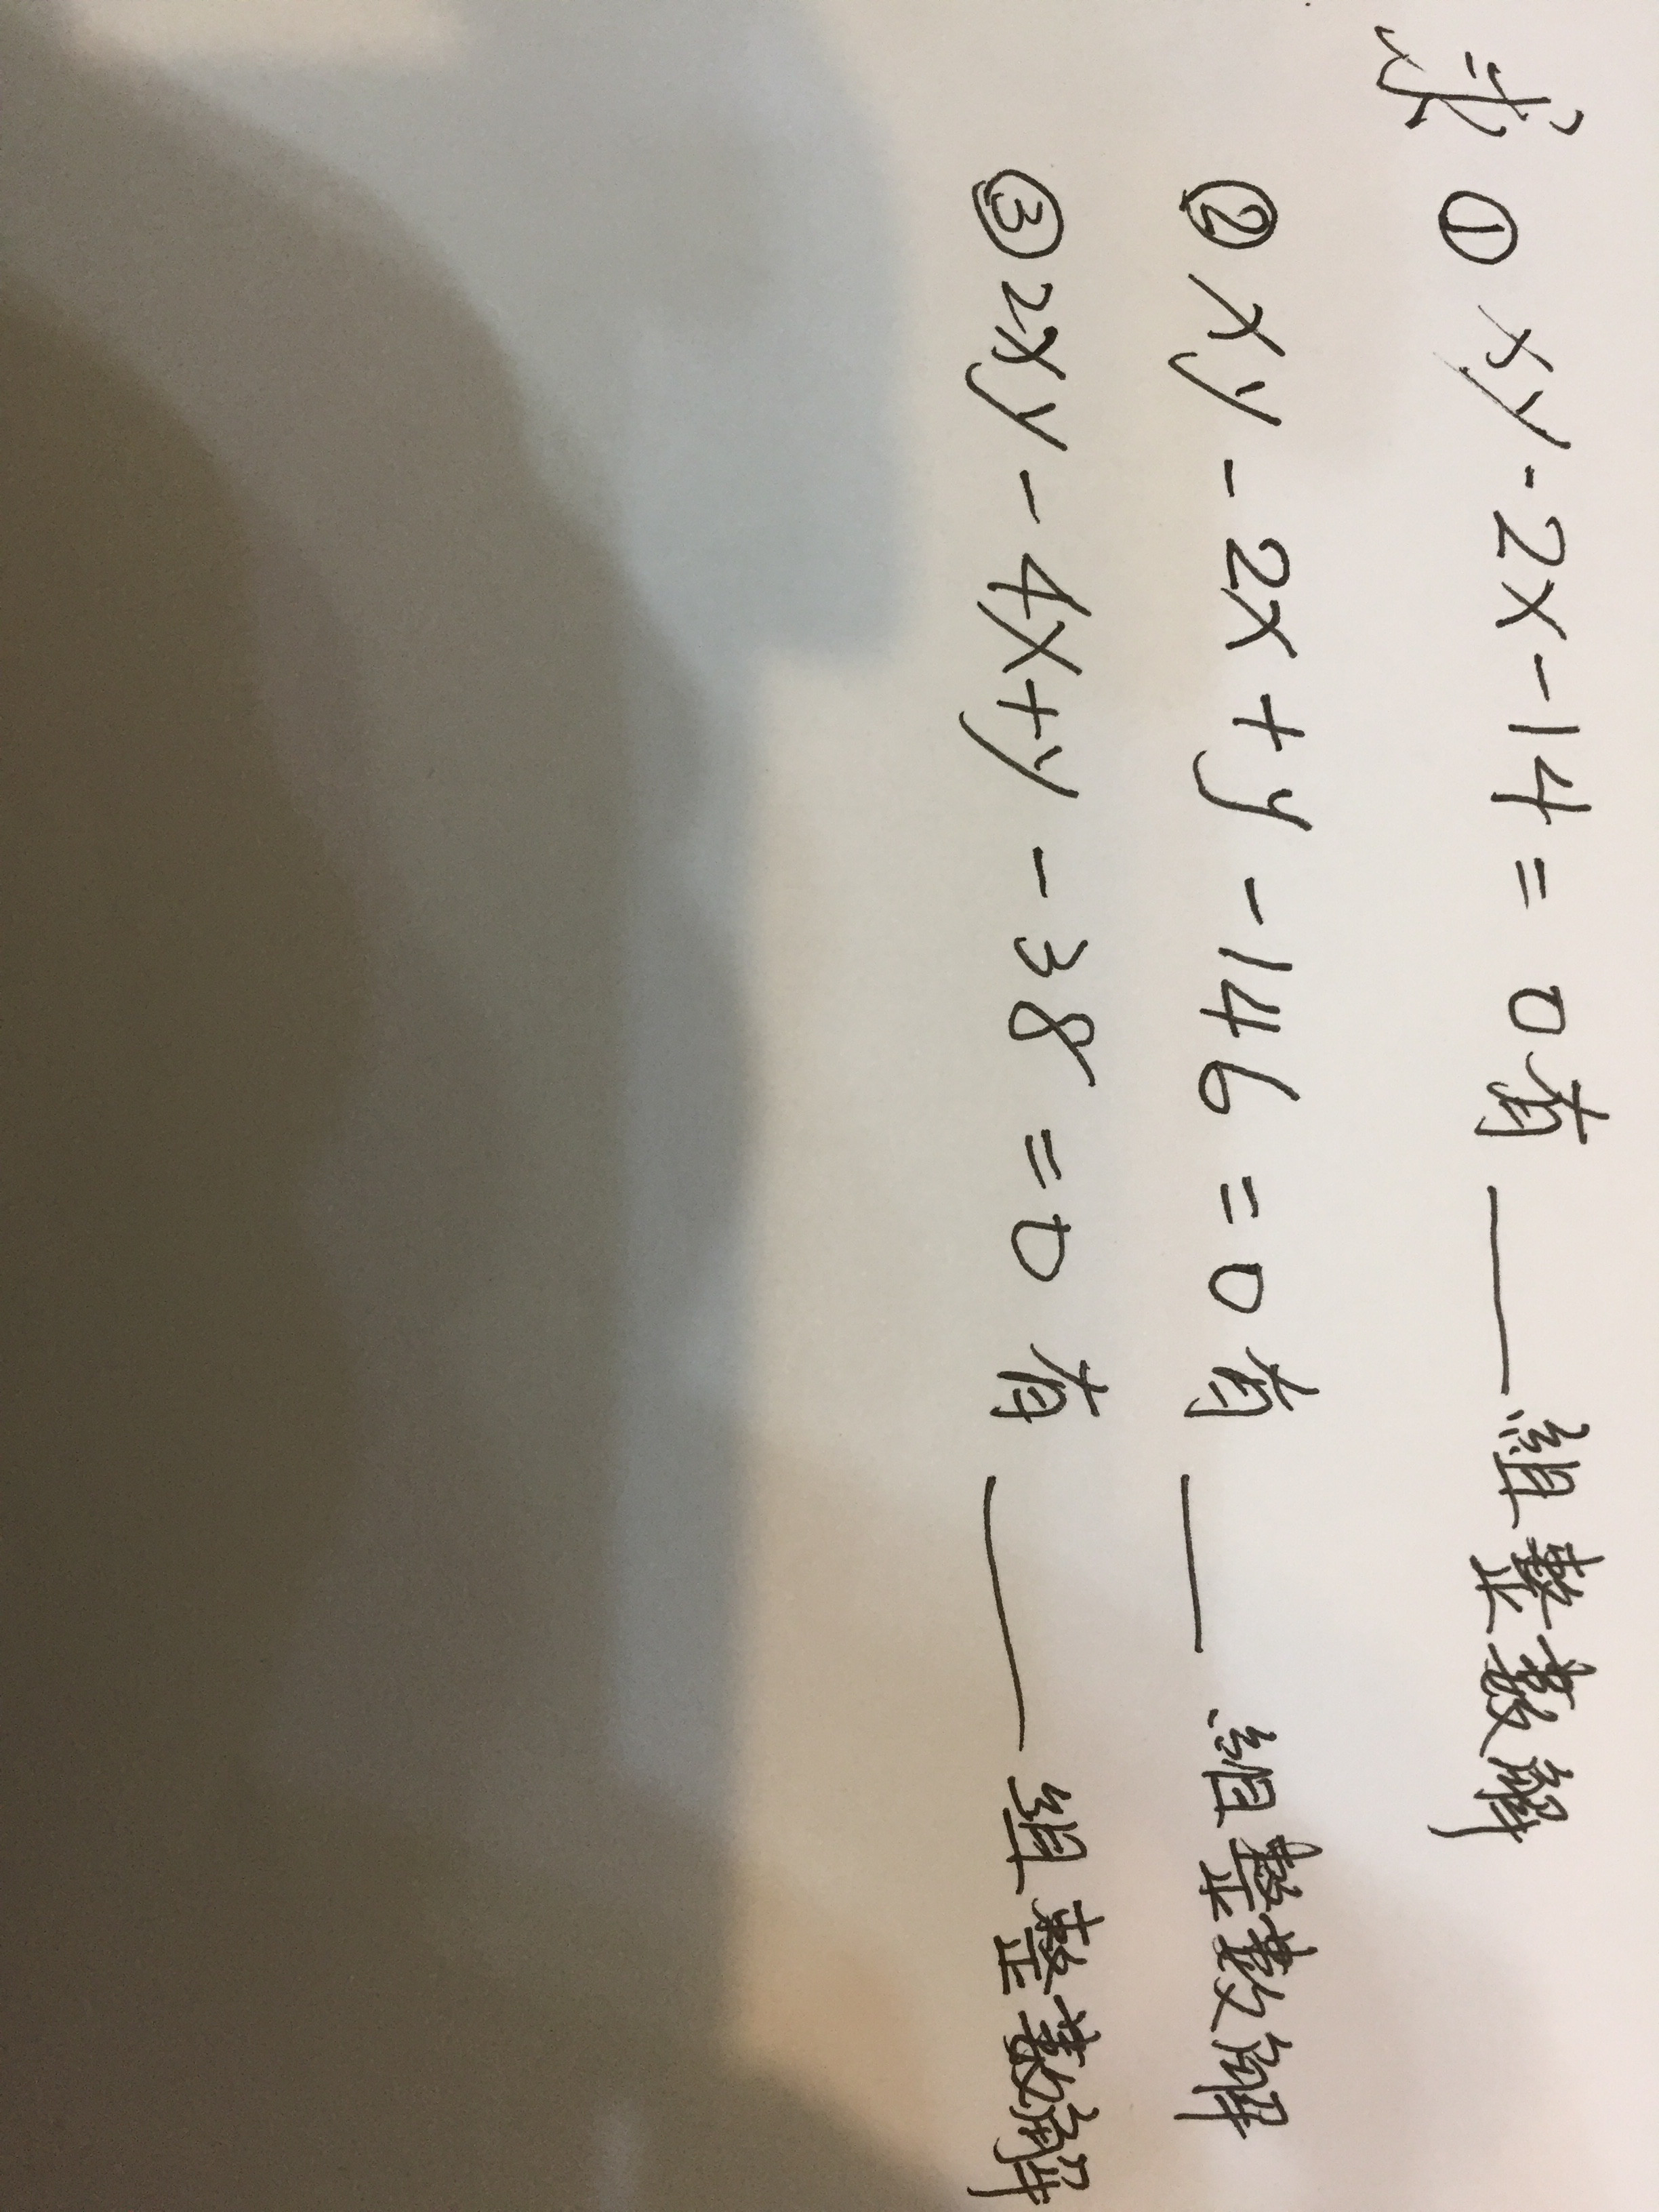 求 ① xy-2x-14=0有____組整數解
② xy-2x+y-146=0有____組整數解
③ 2xy-4x+y-38=0有____組整數解